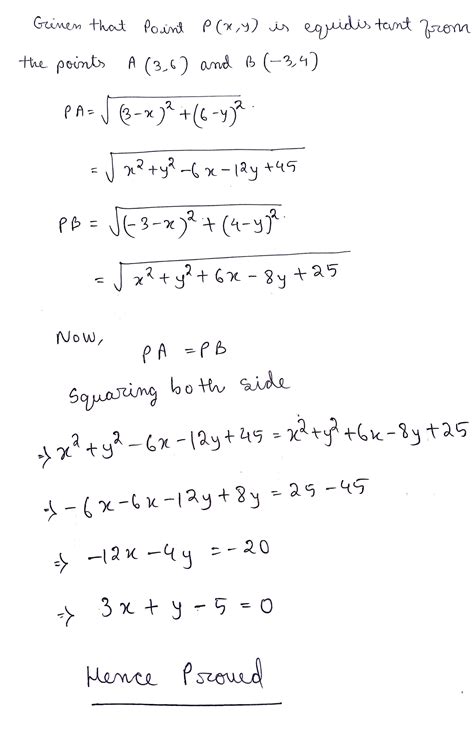 Given that Point P(x,y) is equidistant from
the points A (3,6) and B(-3,4)
PA = √(3-x)² + (6-y)²
= √x² + y² - 6x - 12y + 45
PB = √(-3-x)² + (4-y)²
= √x² + y² + 6x - 8y + 25
Now,
PA = PB
Squaring both side
⇒ x² + y² - 6x - 12y + 45 = x² + y² + 6x - 8y + 25
⇒ -6x - 6x - 12y + 8y = 25 - 45
⇒ -12x - 4y = -20
⇒ 3x + y - 5 = 0
Hence Proved